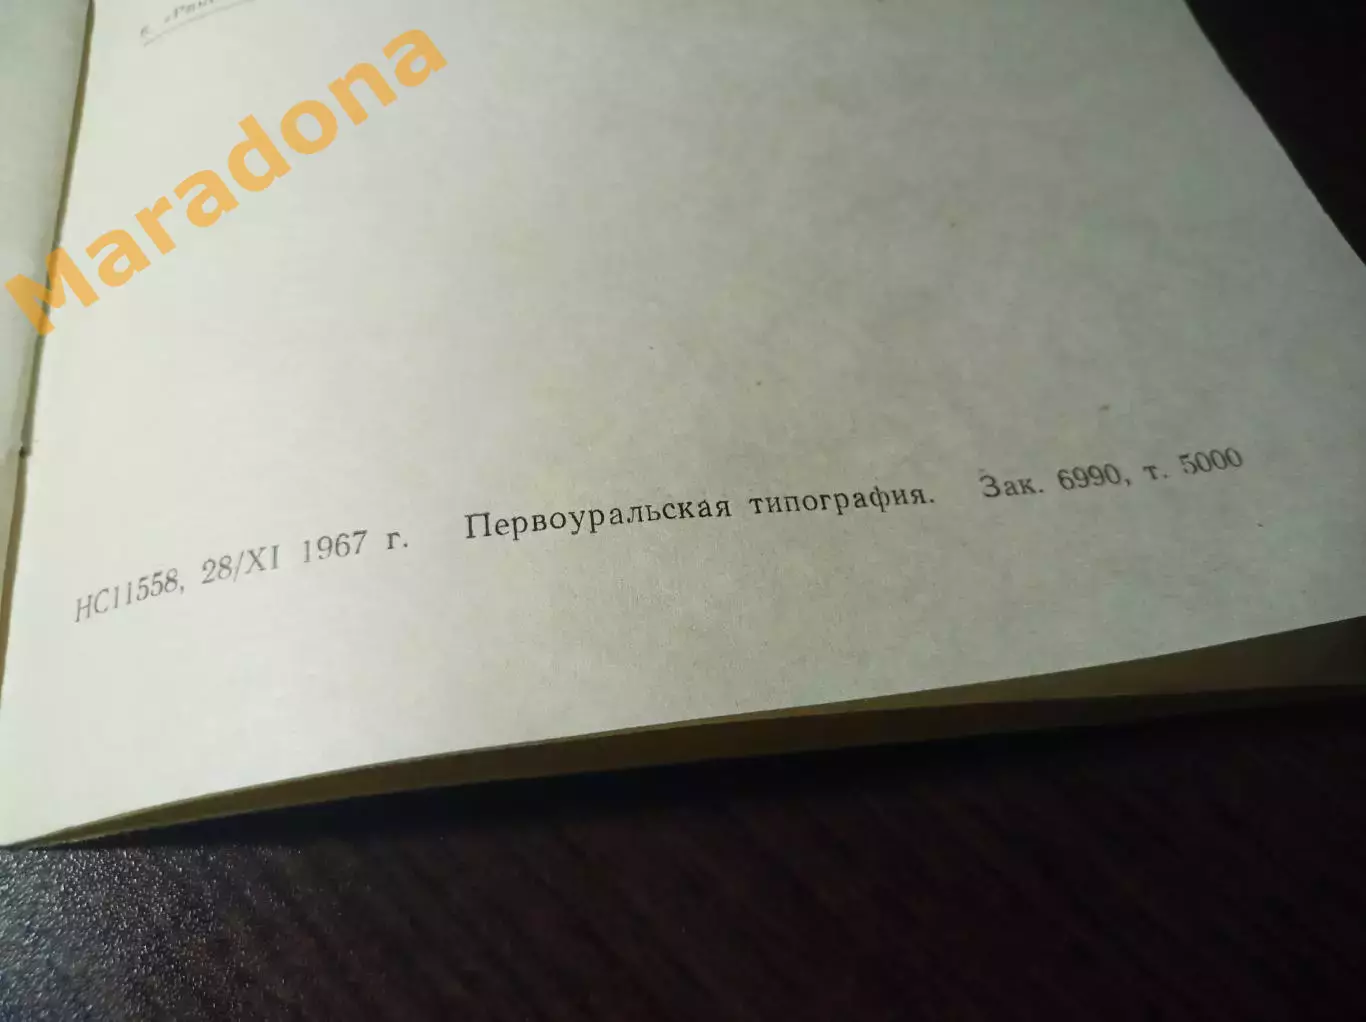 Maradona
НС11558, 28/XI 1967 г. Первоуральская типография. Зак. 6990, т. 5000